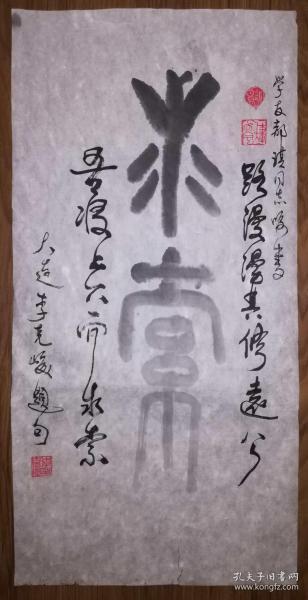 学友郝琪同志嘱书
路漫漫其修远兮
求索
吾将上下而求索
大连李克峻题句
孔夫子旧书网
www.kongfz.com